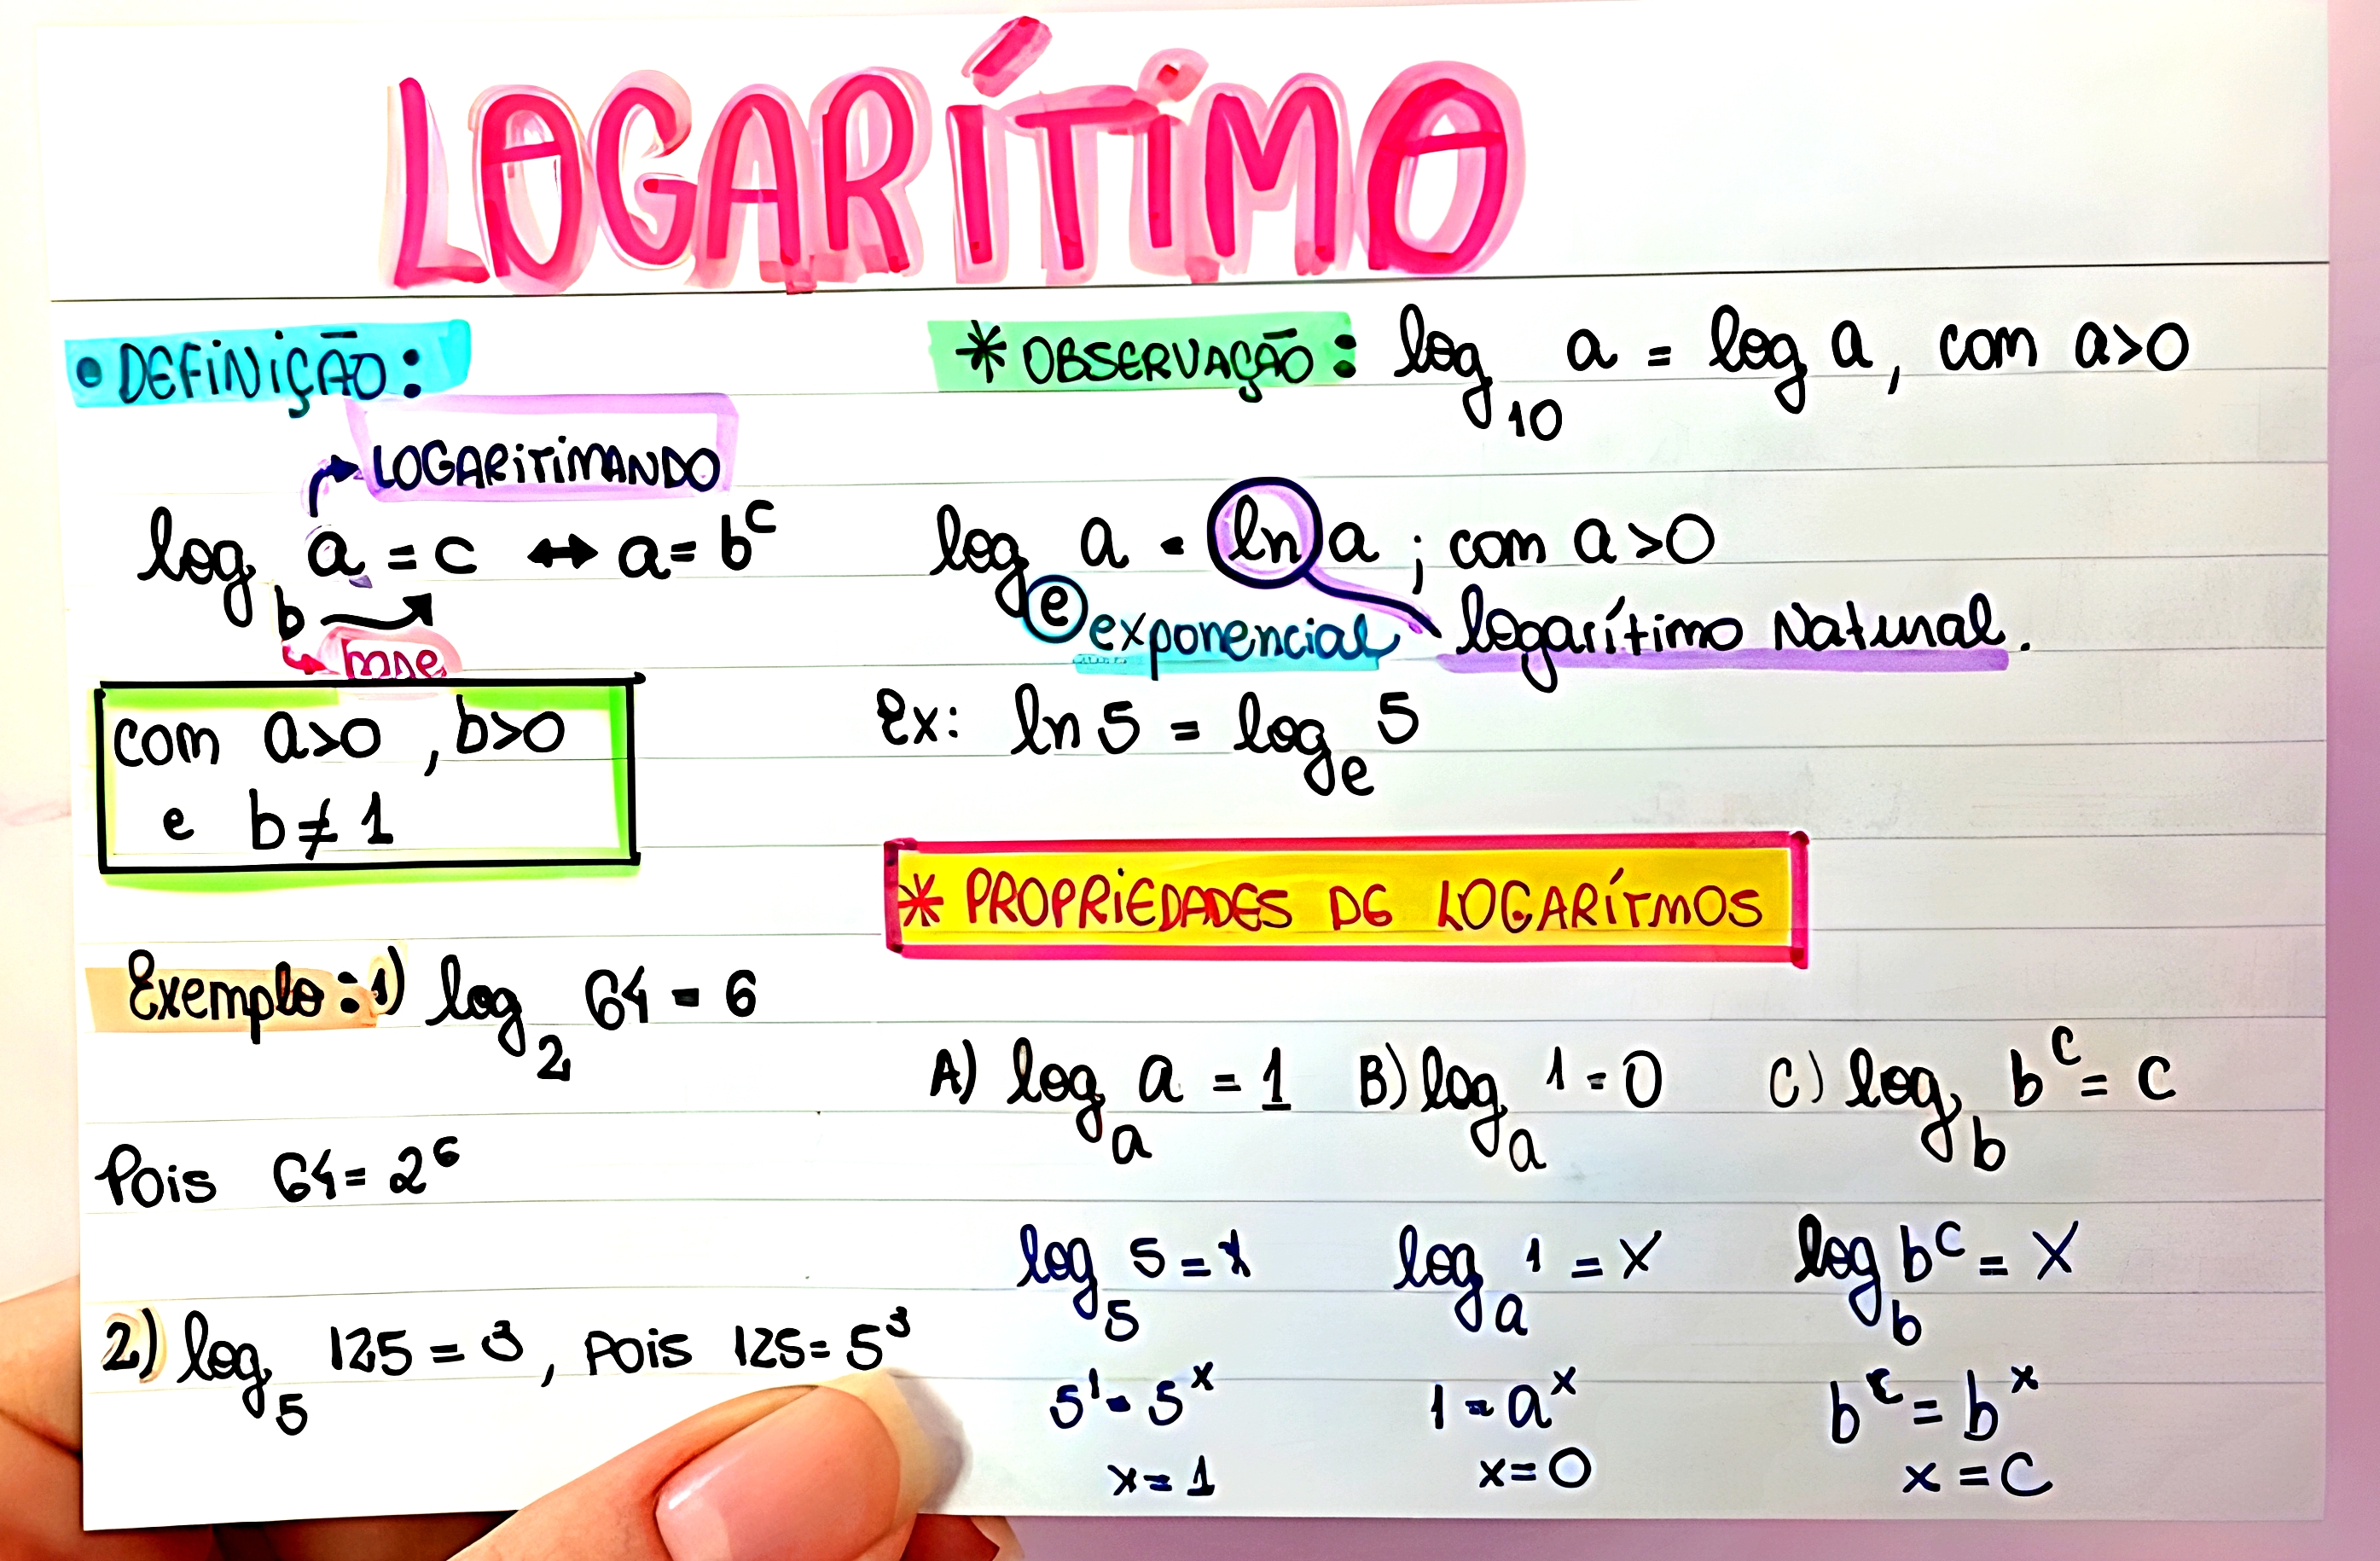 LOGARÍTIMO
• DEFINIÇÃO:
LOGARITIMANDO
log_b a = c ↔ a = b^c
base
com a>0 , b>0
e b≠1
Exemplo: 1) log_2 64 = 6
Pois 64 = 2^6
2) log_5 125 = 3, Pois 125 = 5^3
* OBSERVAÇÃO: log_10 a = log a, com a>0
log_e a = ln a ; com a>0
exponencial logarítimo Natural.
Ex: ln 5 = log_e 5
* PROPRIEDADES DE LOGARÍTMOS
A) log_a a = 1 B) log_a 1 = 0 C) log_b b^c = c
log_5 5 = x log_a 1 = x log_b b^c = x
5^1 = 5^x 1 = a^x b^c = b^x
x = 1 x = 0 x = c